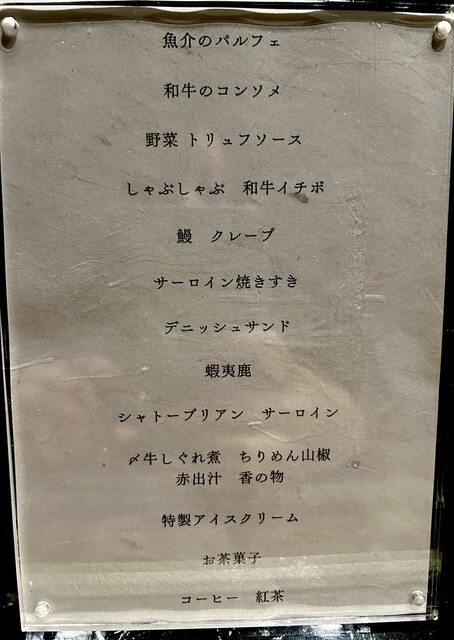 魚介のパルフェ
和牛のコンソメ
野菜 トリュフソース
しゃぶしゃぶ　和牛イチボ
鰻　クレープ
サーロイン焼きすき
デニッシュサンド
蝦夷鹿
シャトーブリアン　サーロイン
〆牛しぐれ煮　ちりめん山椒
赤出汁　香の物
特製アイスクリーム
お茶菓子
コーヒー　紅茶